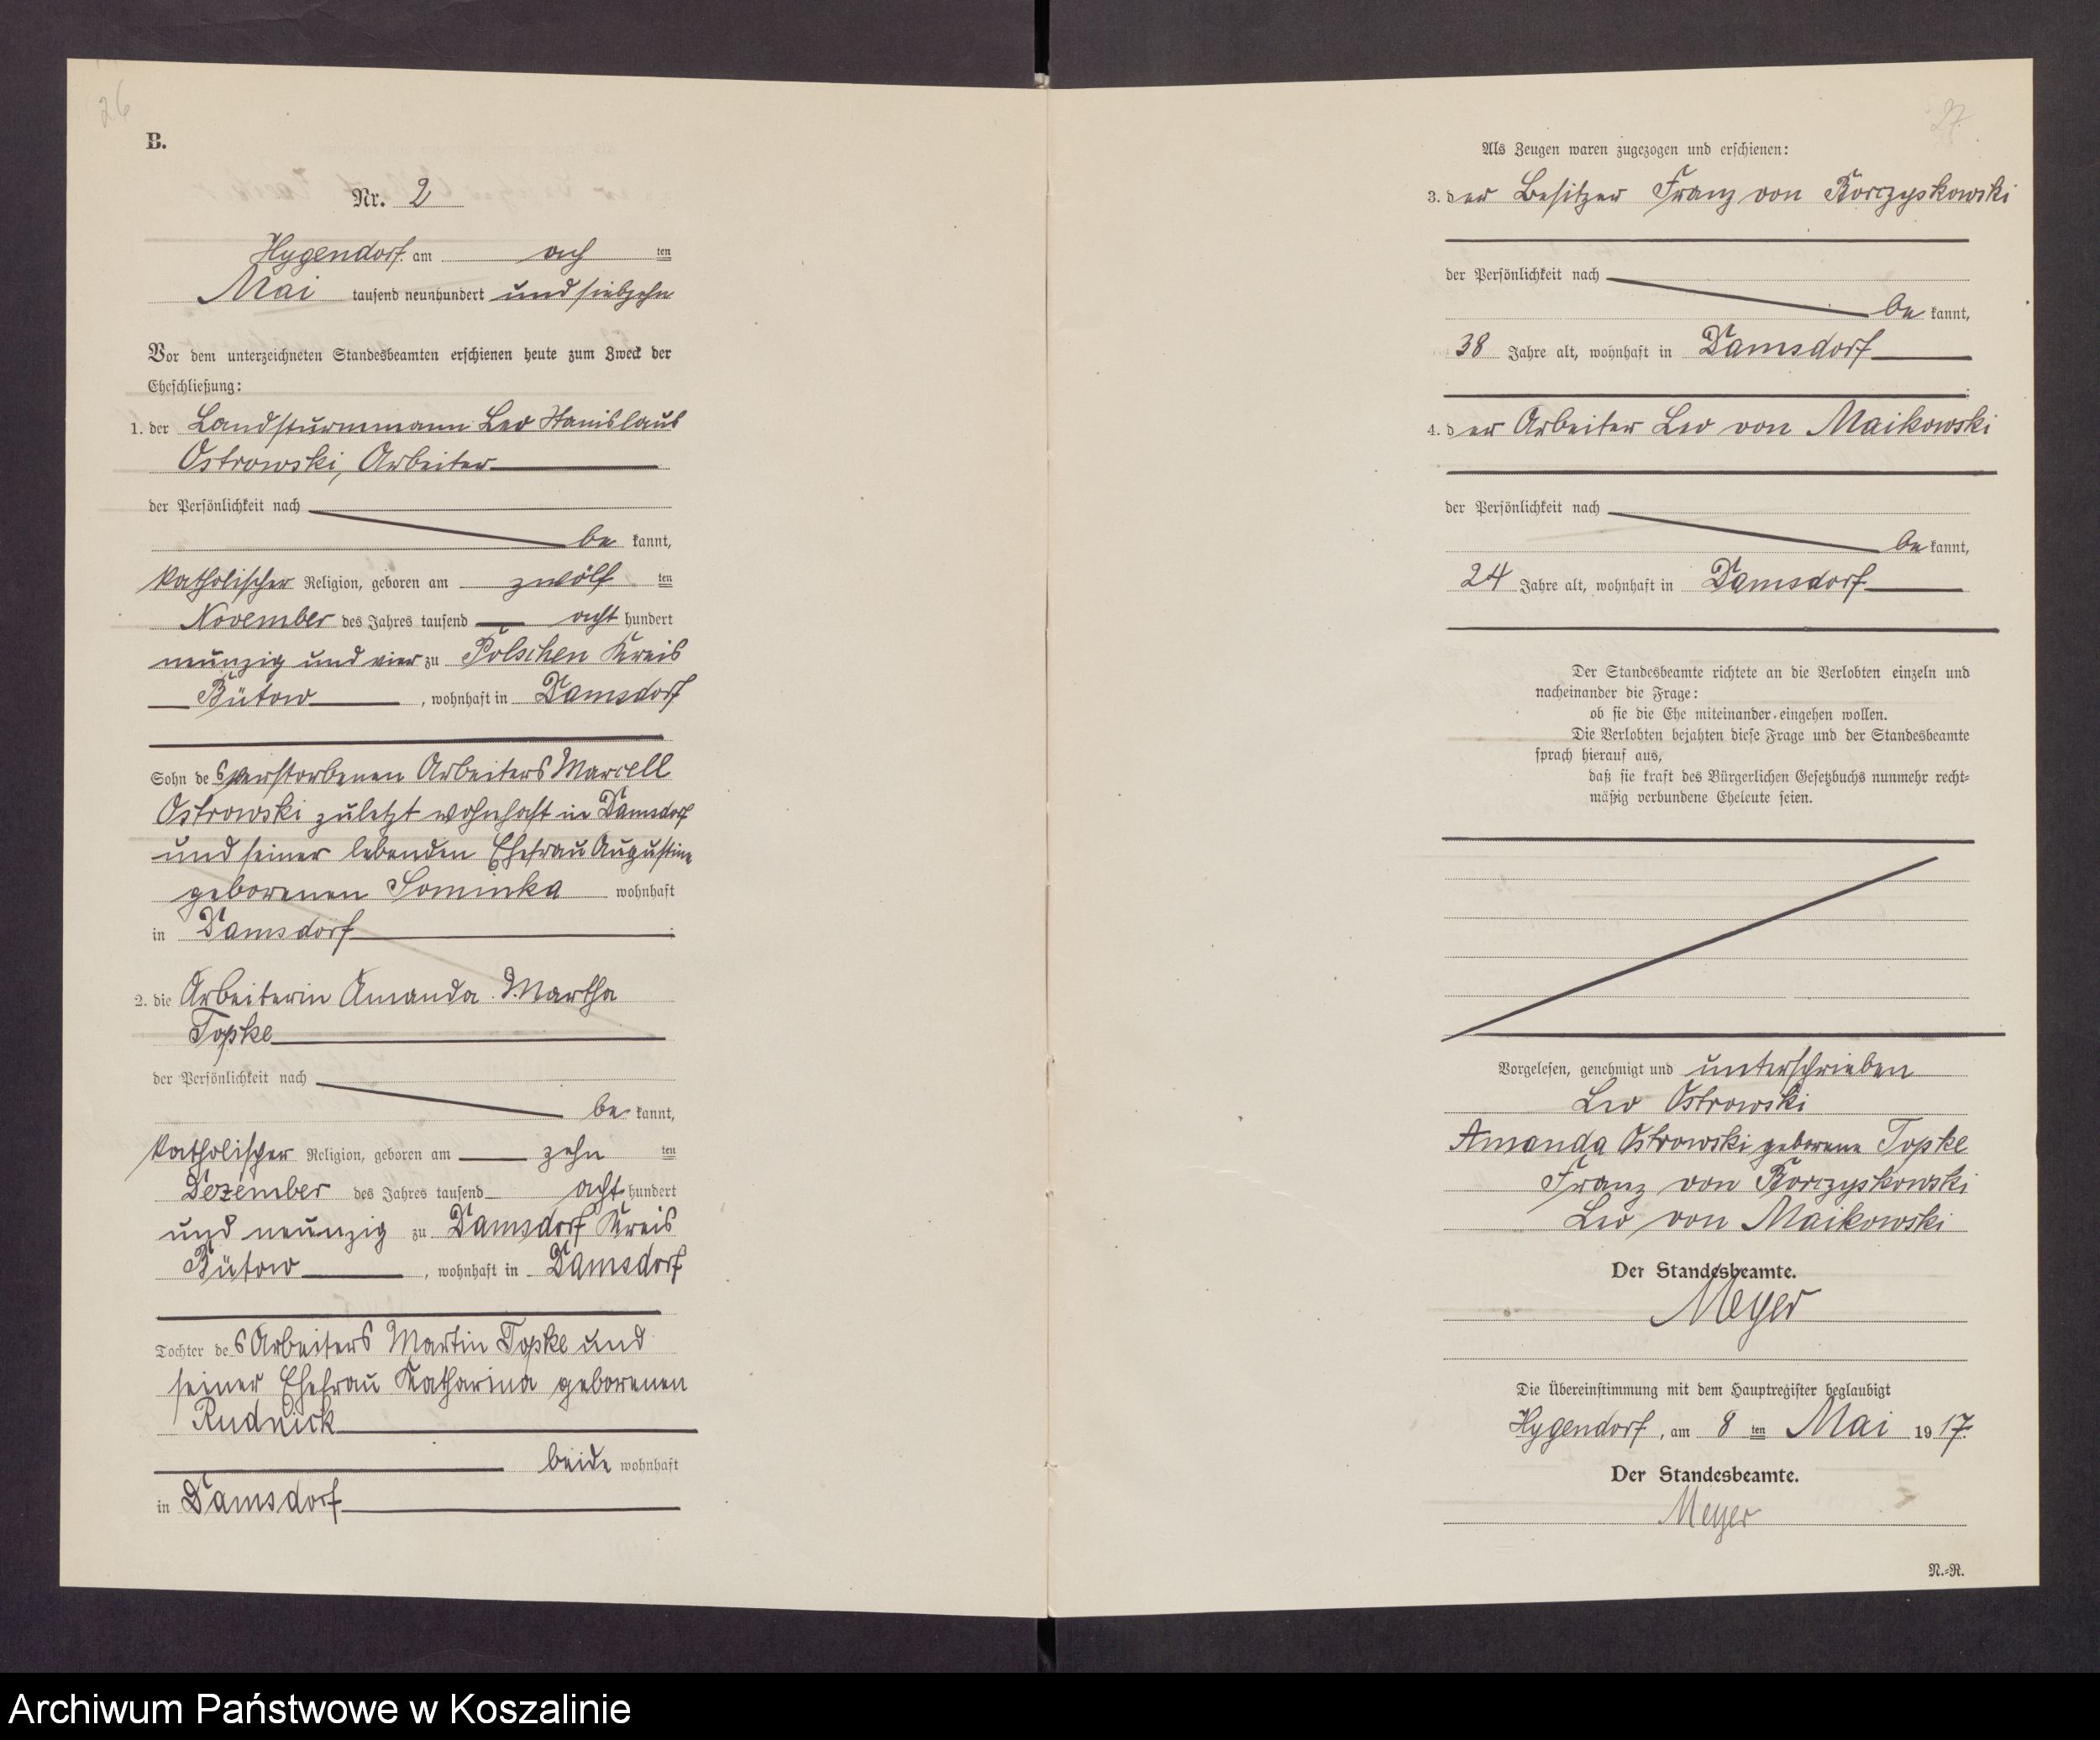 26
B.
Nr. 2
Hygendorf am ach ten
Mai tausend neunhundert und siebzehn
Vor dem unterzeichneten Standesbeamten erschienen heute zum Zweck der
Eheschließung:
1. der Landsturmmann Leo Stanislaus
Ostrowski, Arbeiter
der Persönlichkeit nach
be kannt,
katholischer Religion, geboren am zwölf ten
November des Jahres tausend acht hundert
neunzig und vier zu Polschen Kreis
Bütow, wohnhaft in Damsdorf
Sohn des verstorbenen Arbeiters Marcell
Ostrowski zuletzt wohnhaft in Damsdorf
und seiner lebenden Ehefrau Augustine
geborenen Sominka wohnhaft
in Damsdorf
2. die Arbeiterin Amanda Martha
Topke
der Persönlichkeit nach
be kannt,
katholischer Religion, geboren am zehn ten
Dezember des Jahres tausend acht hundert
und neunzig zu Damsdorf Kreis
Bütow, wohnhaft in Damsdorf
Tochter des Arbeiters Martin Topke und
seiner Ehefrau Katharina geborenen
Rudnick
beide wohnhaft
in Damsdorf
27.
Als Zeugen waren zugezogen und erschienen:
3. der Besitzer Franz von Borczyskowski
der Persönlichkeit nach
be kannt,
38 Jahre alt, wohnhaft in Damsdorf
4. der Arbeiter Leo von Maikowski
der Persönlichkeit nach
be kannt,
24 Jahre alt, wohnhaft in Damsdorf
Der Standesbeamte richtete an die Verlobten einzeln und
nacheinander die Frage:
ob sie die Ehe miteinander eingehen wollen.
Die Verlobten bejahten diese Frage und der Standesbeamte
sprach hierauf aus,
daß sie kraft des Bürgerlichen Gesetzbuchs nunmehr recht-
mäßig verbundene Eheleute seien.
Vorgelesen, genehmigt und unterschrieben
Leo Ostrowski
Amanda Ostrowski geborene Topke
Franz von Borczyskowski
Leo von Maikowski
Der Standesbeamte.
Meyer
Die Übereinstimmung mit dem Hauptregister beglaubigt
Hygendorf, am 8 ten Mai 1917.
Der Standesbeamte.
Meyer
N.-R.
Archiwum Państwowe w Koszalinie